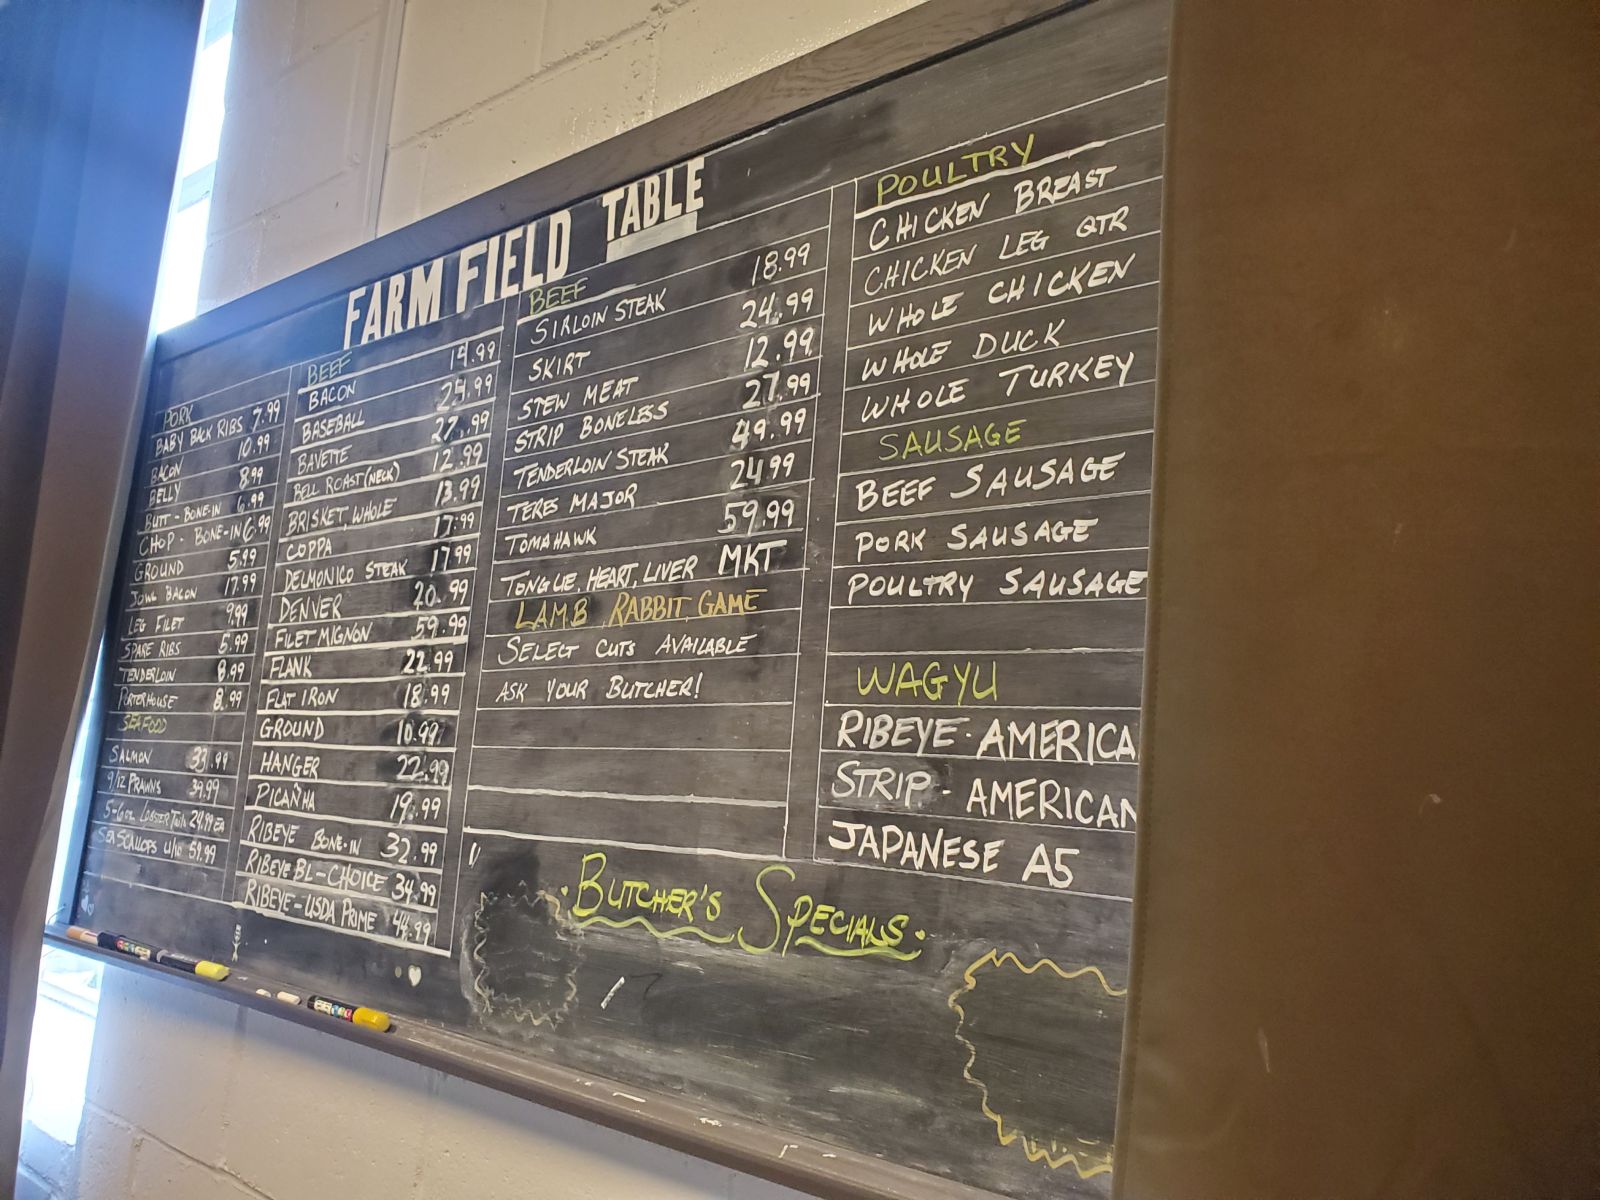 FARM FIELD TABLE
PORK
BABY BACK RIBS 7.99
BACON 10.99
BELLY 8.99
BUTT - BONE-IN 6.99
CHOP - BONE-IN 6.99
GROUND 5.99
JOWL BACON 17.99
LEG FILET 9.99
SPARE RIBS 5.99
TENDERLOIN 8.99
PORTERHOUSE 8.99
SEAFOOD
SALMON 33.99
9/12 PRAWNS 39.99
5-6oz LOBSTER TAIL 24.99 EA
SEA SCALLOPS U/10 59.99
BEEF
BACON 19.99
BASEBALL 24.99
BAVETTE 27.99
BELL ROAST (NECK) 12.99
BRISKET, WHOLE 13.99
COPPA 17.99
DELMONICO STEAK 17.99
DENVER 20.99
FILET MIGNON 59.99
FLANK 22.99
FLAT IRON 18.99
GROUND 10.99
HANGER 22.99
PICANHA 19.99
RIBEYE BONE-IN 32.99
RIBEYE BL-CHOICE 34.99
RIBEYE-USDA PRIME 44.99
BEEF
SIRLOIN STEAK 18.99
SKIRT 24.99
STEW MEAT 12.99
STRIP BONELESS 27.99
TENDERLOIN STEAK 49.99
TERES MAJOR 24.99
TOMAHAWK 59.99
TONGUE, HEART, LIVER MKT
LAMB, RABBIT, GAME
SELECT CUTS AVAILABLE
ASK YOUR BUTCHER!
POULTRY
CHICKEN BREAST
CHICKEN LEG QTR
WHOLE CHICKEN
WHOLE DUCK
WHOLE TURKEY
SAUSAGE
BEEF SAUSAGE
PORK SAUSAGE
POULTRY SAUSAGE
WAGYU
RIBEYE - AMERICA
STRIP - AMERICAN
JAPANESE A5
BUTCHER'S SPECIALS